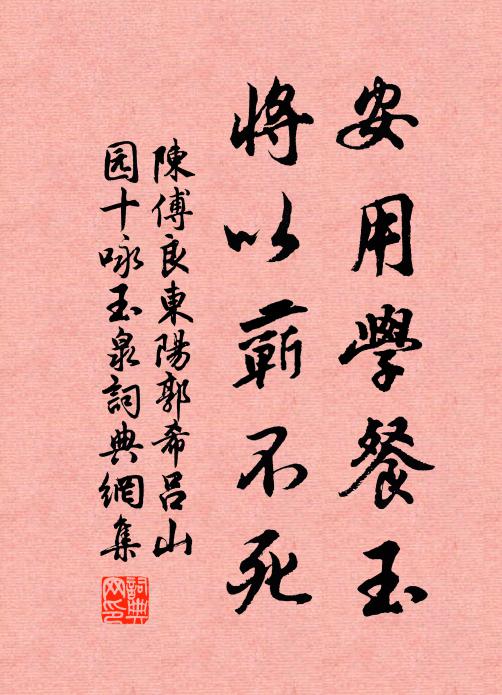 安用學餐玉
將以蘄不死
陳傅良東陽郭希呂山
园十咏玉泉詞典網集
詞典
网印